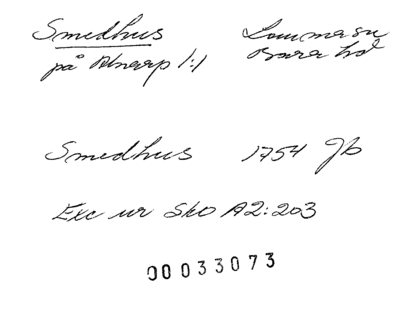 Smedhus
på Alnarp 1:1
Lomma sn
Bara hd
Smedhus 1754 Jb
Exc ur Sko A2:203
00033073